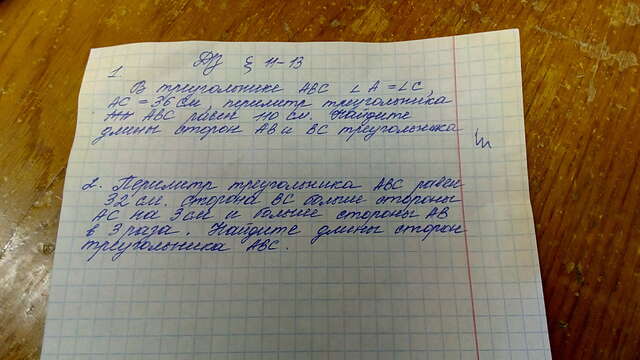 ДЗ § 11-13
1
В треугольнике ABC ∠A = ∠C,
AC = 36 см, периметр треугольника
ABC равен 110 см. Найдите
длины сторон AB и BC треугольника
2. Периметр треугольника ABC равен
32 см. Сторона BC больше стороны
AC на 3 см и больше стороны AB
в 3 раза. Найдите длины сторон
треугольника ABC.